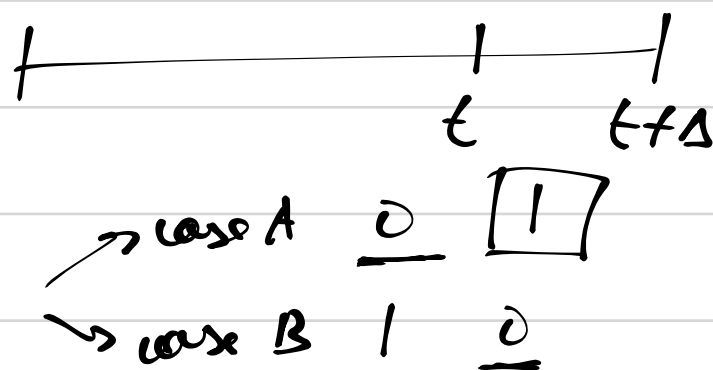 t t+Δ
case A 0 1
case B 1 0